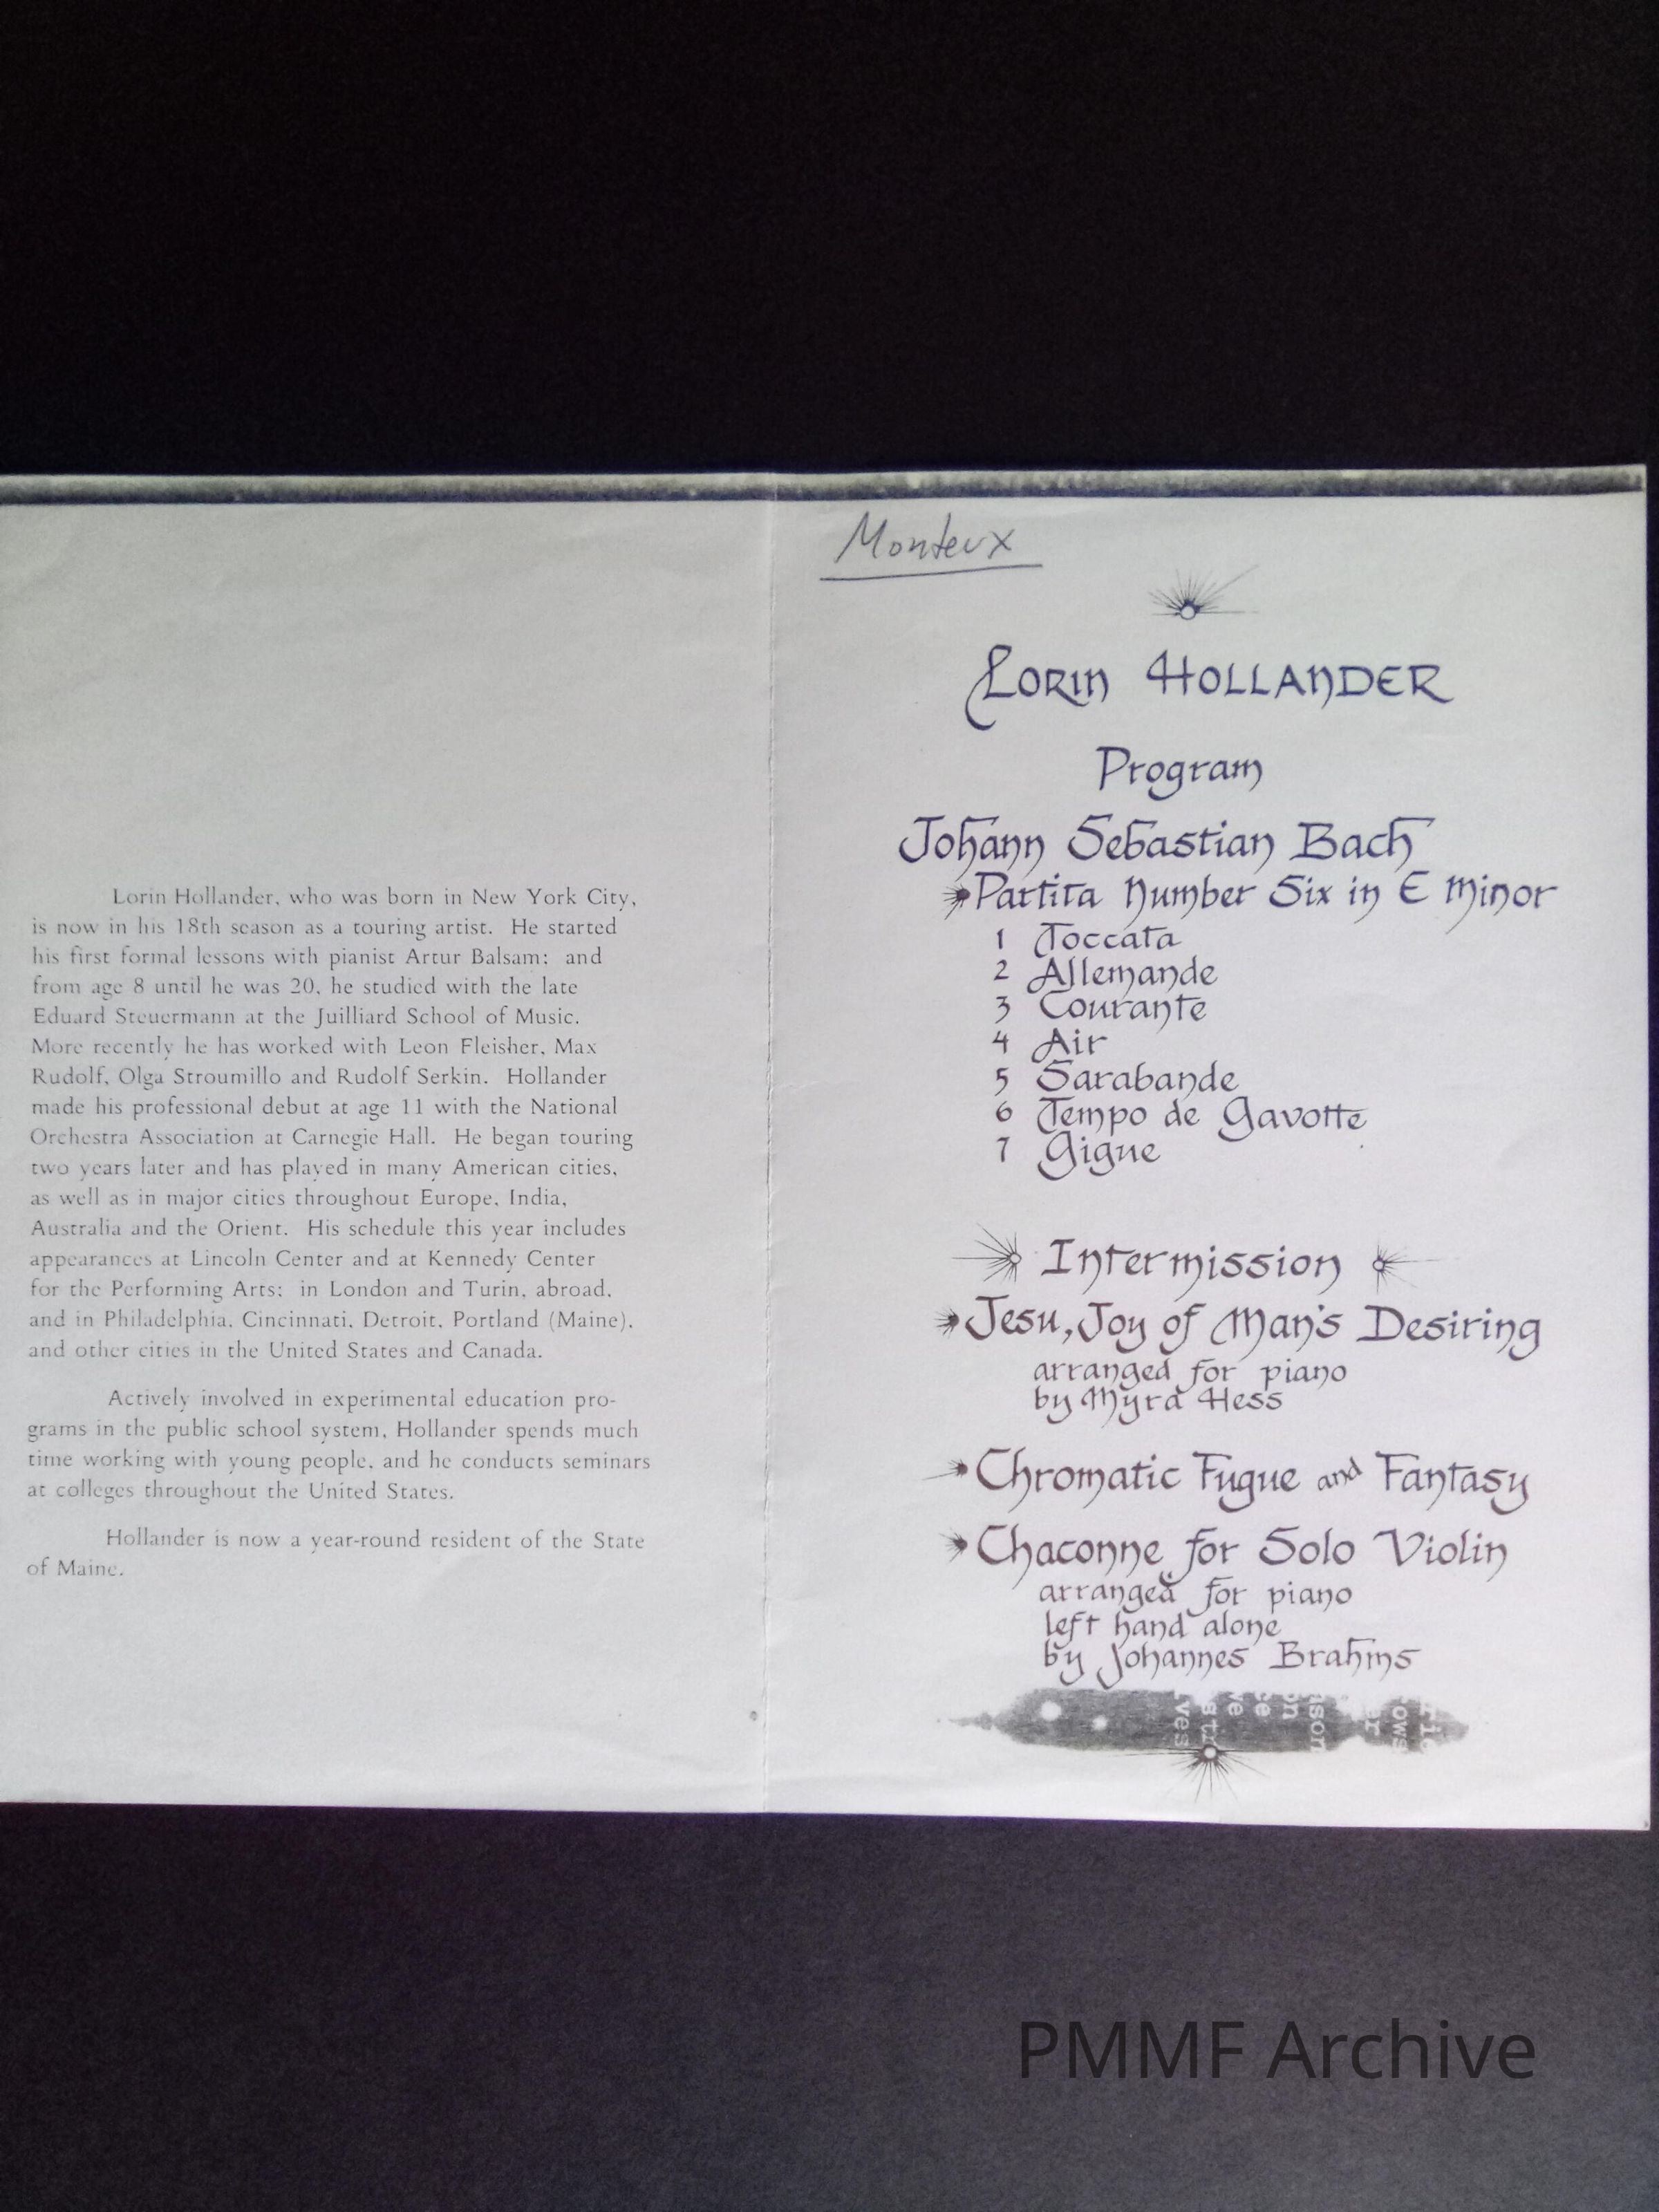 Lorin Hollander, who was born in New York City,
is now in his 18th season as a touring artist. He started
his first formal lessons with pianist Artur Balsam; and
from age 8 until he was 20, he studied with the late
Eduard Steuermann at the Juilliard School of Music.
More recently he has worked with Leon Fleisher, Max
Rudolf, Olga Stroumillo and Rudolf Serkin. Hollander
made his professional debut at age 11 with the National
Orchestra Association at Carnegie Hall. He began touring
two years later and has played in many American cities,
as well as in major cities throughout Europe, India,
Australia and the Orient. His schedule this year includes
appearances at Lincoln Center and at Kennedy Center
for the Performing Arts; in London and Turin, abroad,
and in Philadelphia, Cincinnati, Detroit, Portland (Maine),
and other cities in the United States and Canada.
Actively involved in experimental education pro-
grams in the public school system, Hollander spends much
time working with young people, and he conducts seminars
at colleges throughout the United States.
Hollander is now a year-round resident of the State
of Maine.
Monteux
Lorin Hollander
Program
Johann Sebastian Bach
Partita Number Six in E Minor
1 Toccata
2 Allemande
3 Courante
4 Air
5 Sarabande
6 Tempo de Gavotte
7 Gigue
Intermission
Jesu, Joy of Man's Desiring
arranged for piano
by Myra Hess
Chromatic Fugue and Fantasy
Chaconne for Solo Violin
arranged for piano
left hand alone
by Johannes Brahms
PMMF Archive